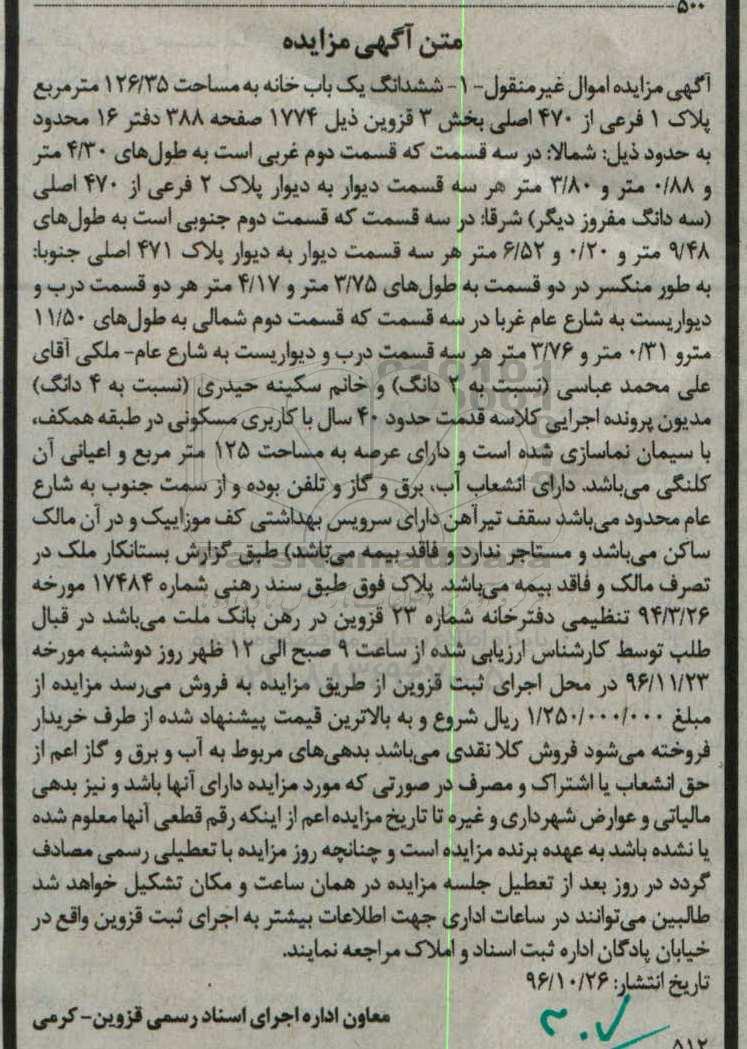 ۵۰۰
متن آگهی مزایده
آگهی مزایده اموال غیرمنقول- ۱- ششدانگ یک باب خانه به مساحت ۱۲۶/۳۵ مترمربع
پلاک ۱ فرعی از ۴۷۰ اصلی بخش ۳ قزوین ذیل ۱۷۷۴ صفحه ۳۸۸ دفتر ۱۶ محدود
به حدود ذیل: شمالا: در سه قسمت که قسمت دوم غربی است به طول‌های ۴/۳۰ متر
و ۰/۸۸ متر و ۳/۸۰ متر هر سه قسمت دیوار به دیوار پلاک ۲ فرعی از ۴۷۰ اصلی
(سه دانگ مفروز دیگر) شرقا: در سه قسمت که قسمت دوم جنوبی است به طول‌های
۹/۴۸ متر و ۰/۲۰ و ۶/۵۲ متر هر سه قسمت دیوار به دیوار پلاک ۴۷۱ اصلی جنوبا:
به طور منکسر در دو قسمت به طول‌های ۳/۷۵ متر و ۴/۱۷ متر هر دو قسمت درب و
دیواریست به شارع عام غربا در سه قسمت که قسمت دوم شمالی به طول‌های ۱۱/۵۰
مترو ۰/۳۱ متر و ۳/۷۶ متر هر سه قسمت درب و دیواریست به شارع عام- ملکی آقای
علی محمد عباسی (نسبت به ۲ دانگ) و خانم سکینه حیدری (نسبت به ۴ دانگ)
مدیون پرونده اجرایی کلاسه قدمت حدود ۴۰ سال با کاربری مسکونی در طبقه همکف،
با سیمان نماسازی شده است و دارای عرصه به مساحت ۱۲۵ متر مربع و اعیانی آن
کلنگی می‌باشد. دارای انشعاب آب، برق و گاز و تلفن بوده و از سمت جنوب به شارع
عام محدود می‌باشد سقف تیرآهن دارای سرویس بهداشتی کف موزاییک و در آن مالک
ساکن می‌باشد و مستاجر ندارد و فاقد بیمه می‌باشد) طبق گزارش بستانکار ملک در
تصرف مالک و فاقد بیمه می‌باشد. پلاک فوق طبق سند رهنی شماره ۱۷۴۸۴ مورخه
۹۴/۳/۲۶ تنظیمی دفترخانه شماره ۲۳ قزوین در رهن بانک ملت می‌باشد در قبال
طلب توسط کارشناس ارزیابی شده از ساعت ۹ صبح الی ۱۲ ظهر روز دوشنبه مورخه
۹۶/۱۱/۲۳ در محل اجرای ثبت قزوین از طریق مزایده به فروش می‌رسد مزایده از
مبلغ ۱/۲۵۰/۰۰۰/۰۰۰ ریال شروع و به بالاترین قیمت پیشنهاد شده از طرف خریدار
فروخته می‌شود فروش کلا نقدی می‌باشد بدهی‌های مربوط به آب و برق و گاز اعم از
حق انشعاب یا اشتراک و مصرف در صورتی که مورد مزایده دارای آنها باشد و نیز بدهی
مالیاتی و عوارض شهرداری و غیره تا تاریخ مزایده اعم از اینکه رقم قطعی آنها معلوم شده
یا نشده باشد به عهده برنده مزایده است و چنانچه روز مزایده با تعطیلی رسمی مصادف
گردد در روز بعد از تعطیل جلسه مزایده در همان ساعت و مکان تشکیل خواهد شد
طالبین می‌توانند در ساعات اداری جهت اطلاعات بیشتر به اجرای ثبت قزوین واقع در
خیابان پادگان اداره ثبت اسناد و املاک مراجعه نمایند.
تاریخ انتشار: ۹۶/۱۰/۲۶
معاون اداره اجرای اسناد رسمی قزوین- کرمی
۵۱۲